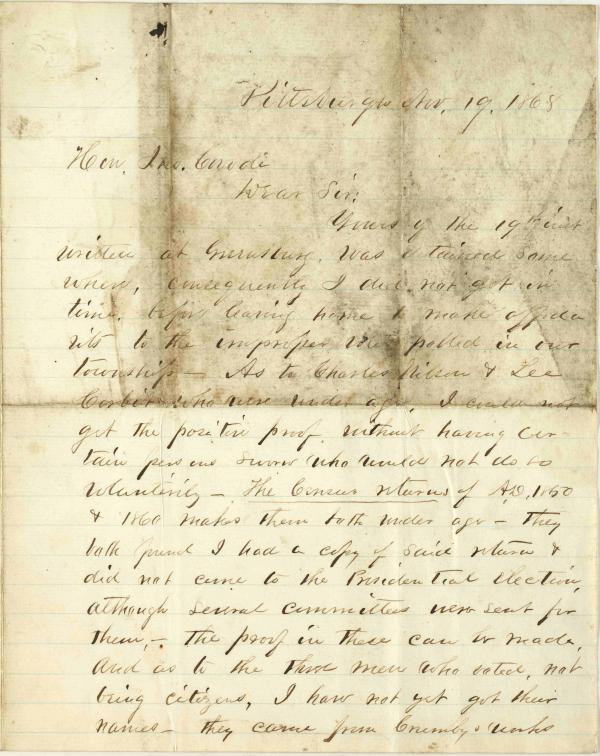 Pittsburgh Nov. 19. 1868
Hon. Jno. Covode
Dear Sir:
Yours of the 19th inst
written at Greensburg, was detained some
where, consequently I did not get in
time, before leaving home to make affida
vits to the improper votes polled in our
township — As to Charles Wilson & Lee
Corbit who were under age, I could not
get the positive proof, without having cer-
tain persons sworn who would not do so
voluntirily — The Census returns of A.D. 1850
& 1860 makes them both under age — they
both found I had a copy of said return &
did not come to the Presidential election,
although several committees were sent for
them, — the proof in these can be made,
And as to the three men who voted, not
being citizens, I have not yet got their
names — they came from works